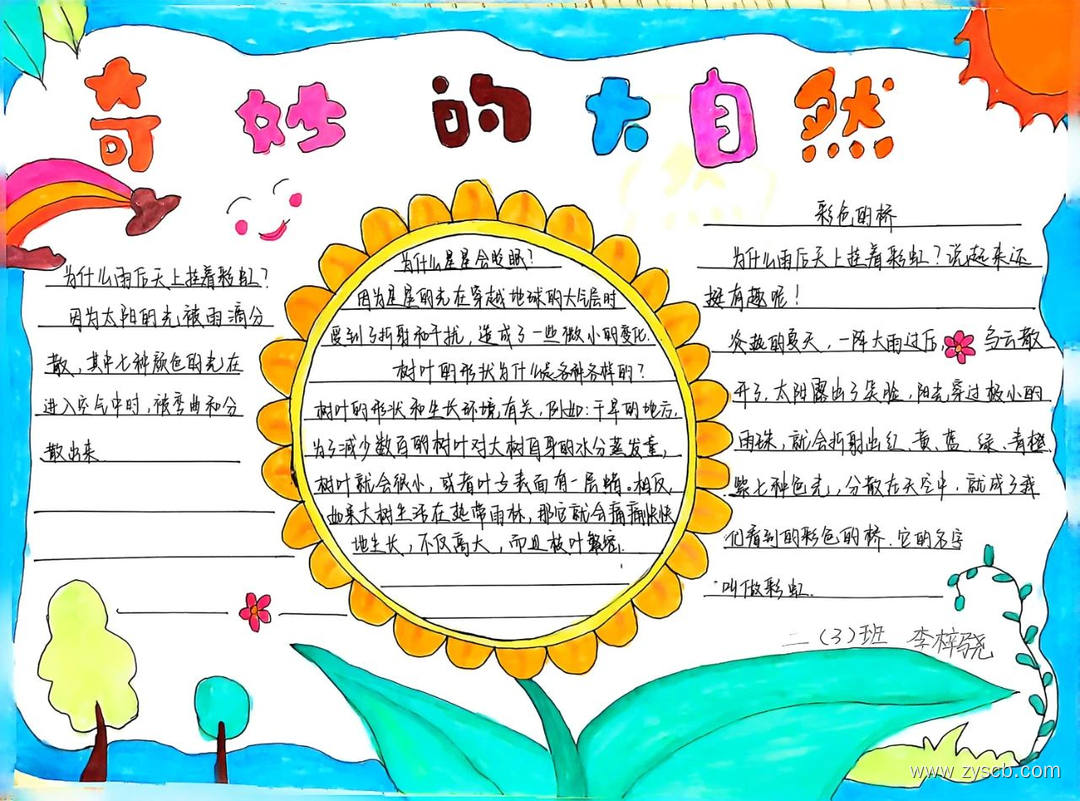 奇妙的大自然
为什么雨后天上挂着彩虹?
因为太阳的光被雨滴分
散,其中七种颜色的光在
进入空气中时,被弯曲和分
散出来
为什么星星会眨眼?
因为星星的光在穿越地球的大气层时
受到了折射和干扰,造成了一些微小的变化.
树叶的形状为什么是各种各样的?
树叶的形状和生长环境有关,例如:干旱的地方,
为了减少数百的树叶对大树自身的水分蒸发量,
树叶就会很小,或者叶子表面有一层蜡。相反,
如果大树生活在热带雨林,那它就会痛痛快快
地生长,不仅高大,而且枝叶繁密.
彩色的桥
为什么雨后天上挂着彩虹?说起来还
挺有趣呢!
炎热的夏天,一阵大雨过后,乌云散
开了,太阳露出了笑脸,阳光穿过极小的
雨珠,就会折射出红、黄、蓝、绿、青橙
紫七种色光,分散在天空中,就成了我
们看到的彩色的桥.它的名字
叫做彩虹.
二(3)班 李梓骁
www.zyscb.com